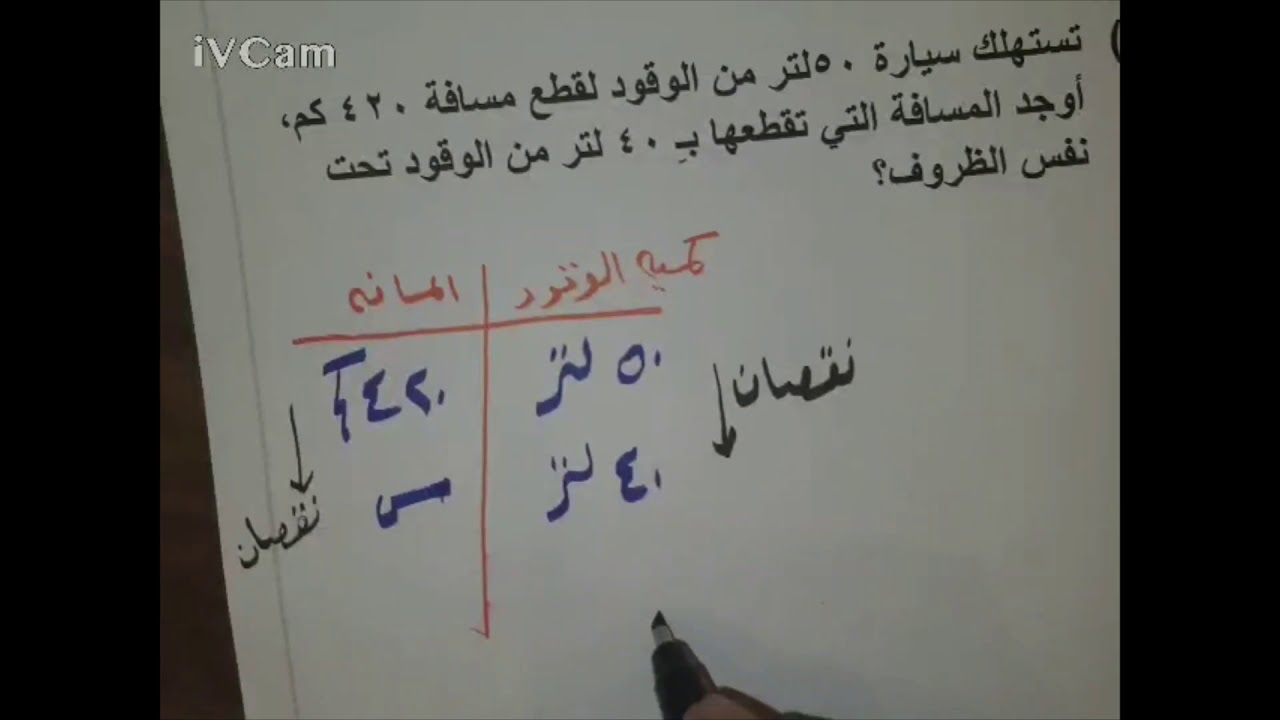 iVCam
تستهلك سيارة ٥٠لتر من الوقود لقطع مسافة ٤٢٠ كم،
أوجد المسافة التي تقطعها بـِ ٤٠ لتر من الوقود تحت
نفس الظروف؟
كمية الوقود المسافة
٥٠ لتر ٤٢٠
٤٠ لتر س
نقصان
نقصان